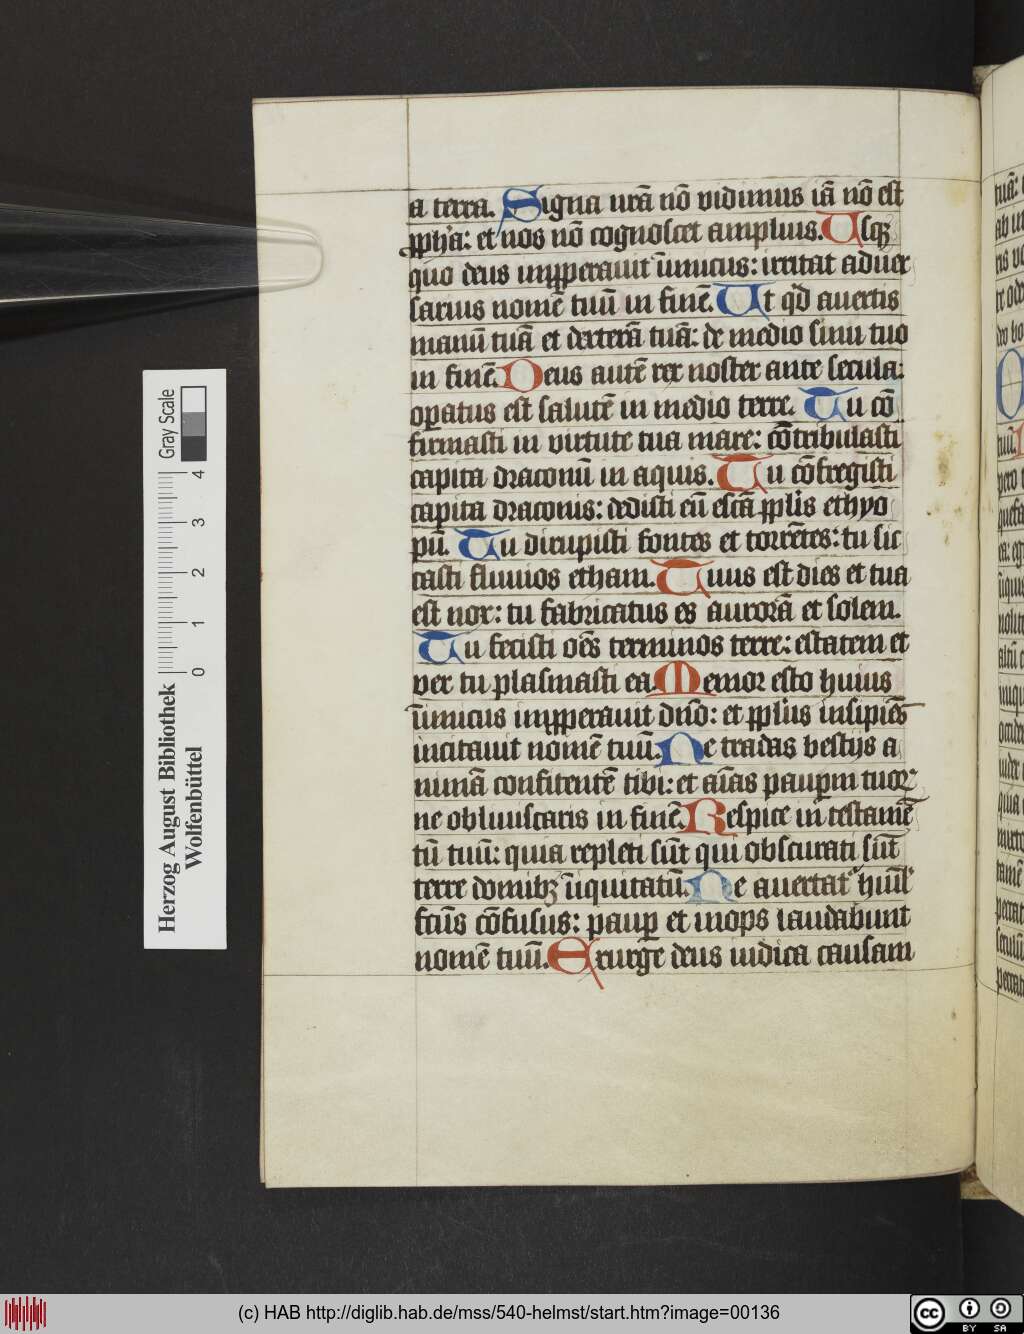 a terra. Signa nr̄a nō vidimus iā nō est
ꝓpha: et nos nō cognoscet amplius. Usq3
quo deus imꝓperauit inimicus: irritat aduer
sarius nomē tuū in finē. Ut qd auertis
manū tuā et dexterā tuā: de medio sinu tuo
in finē. Deus autē rex noster ante secula:
oꝑatus est salutē in medio terre. Tu cō
firmasti in virtute tua mare: cōtribulasti
capita draconū in aquis. Tu cōfregisti
capita draconis: dedisti eū escā pplis ethyo
pū. Tu dirupisti fontes et torrētes: tu sic
casti fluuios etham. Tuus est dies et tua
est nox: tu fabricatus es aurorā et solem.
Tu fecisti oēs terminos terre: estatem et
ver tu plasmasti ea. Memor esto huius
inimicus imꝓperauit dn̄o: et ppl̄us insipiēs
incitauit nomē tuū. Ne tradas bestijs a
nimā confitentē tibi: et aīas paupm tuoꝝ
ne obliuiscaris in finē. Respice in testamē
tū tuū: quia repleti sūt qui obscurati sūt
terre domib3 iniquitatū. Ne auertatᷣ humil
fcūs cōfusus: pauꝑ et inops laudabunt
nomē tuū. Exurge deus iudica causam
Herzog August Bibliothek
Wolfenbüttel
0 1 2 3 4
Gray Scale
(c) HAB http://diglib.hab.de/mss/540-helmst/start.htm?image=00136
cc BY SA